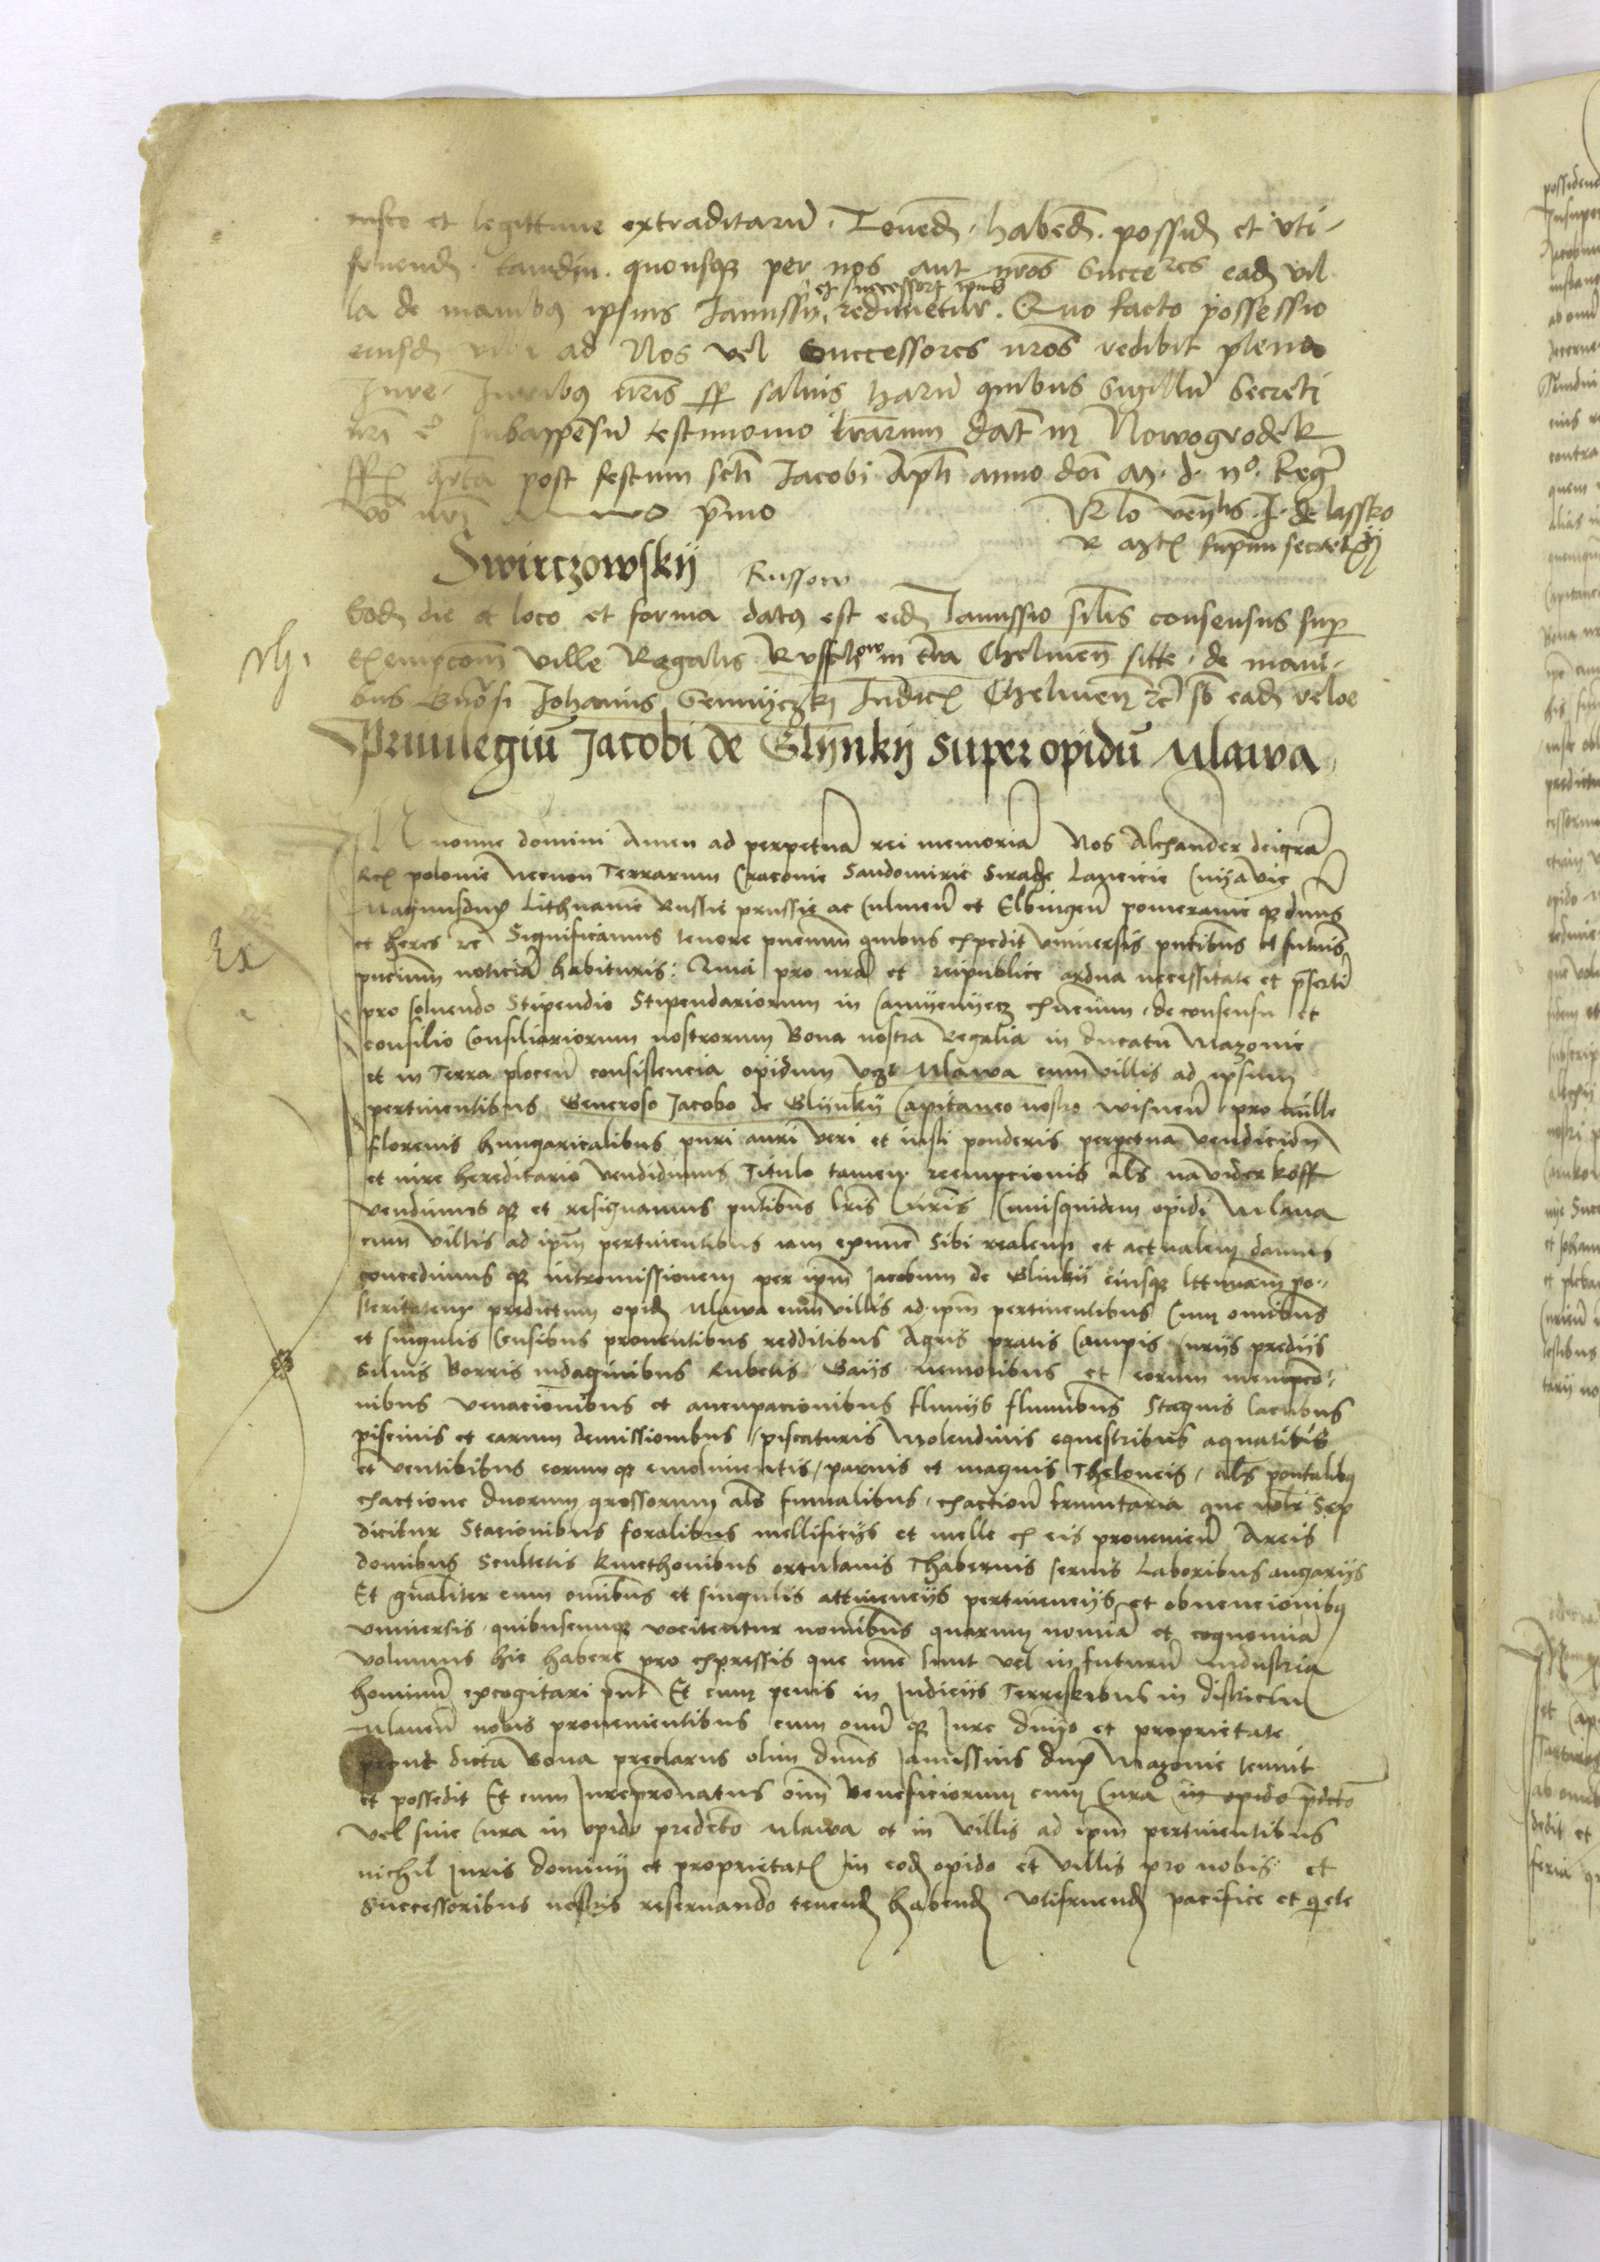 et legittime extraditarū. Tenend. habend. possid et vti-
fruend. tamdiu. quousq per nos aut nros Succeres ead vil
et successor ipius
la de manibus ipsius Janussii, redimetur. Quo facto possessio
eiusd ad Nos vel Successores nros redibit pleno
Jure. Juribus nris sp saluis harū quibus Sigillū Secreti
nri e subappensū testimonio lrarum dat in Nowogrodek
post festum scti Jacobi Apli anno doi M. d. nº. Regni
vo nri pmo
Rlo venlis J. de lassko
R supmi secretarij
Swirczowskij
Russow
Eod die et loco et forma datus est eid Janussio silis consensus sup
exempcom ville Regalis Russelow in tra Chelmen sitte. de mani-
bus Gnosi Johanis Judicis Chelmen rc sb ead veloe
Priuilegiū Jacobi de Glijnkij super opidū Mlawa
N nomine domini Amen ad perpetuā rei memoriā Nos Alexander dei grā
Rex polonie Necnon Terrarum Cracouie Sandomirie Siradie Lancicie Cuijavie
Magnusdux Lithuanie Russie prussie ac Culmen et Elbingen pomeranie q dnus
et heres rc Significamus tenore pncium quibus expedit vniuersis pntibus et futuris
pncium noticiā habituris: Quia pro nra et reipublice ardua necessitate et psertī
pro soluendo Stipendio Stipendariorum in Camijenijecz existencium. de consensu et
consilio Consiliariorum nostrorum Bona nostra Regalia in ducatu Mazouie
et in Terra plocen consistencia opidum vzt Mlawa cum villis ad ipsum
pertinentibus Generoso Jacobo de Glijnkij Capitaneo nostro wisnen pro mille
florenis hungaricalibus puri auri veri et iusti ponderis perpetua vendicion
et iure hereditario vendidimus Titulo tamen reempcionis als na viderkoff
vendimus q et resignamus pntibus lris nris Cuiusquidem opidi Mlawa
cum villis ad ipm pertinentibus iam ex nunc Sibi realem et actualem damus
concedimus q intromissionem per ipm Jacobum de Glinkij eiusque lttimam po-
steritatem predictum opid Mlawa cum villis ad ipm pertinentibus Cum omibus
et singulis Censibus prouentibus redditibus Agris pratis Campis Curijs predijs
Siluis Borris indaginibus Rubetis Gaijs nemoribus et eorum
nibus venacionibus et aucupacionibus fluuijs fluminibus Stagnis lacubus
piscinis et earum demissionibus, piscaturis Molendinis equestribus aquatilibus
et ventibibus eorumq emolimentis, paruis et magnis Theloneis, als pontalibus
exactione duorum grossorum als fumalibus, exaction frumtaria que vlr Sep
dicitur Stationibus foralibus mellificijs et melle ex eis prouenien Areis
domibus Scultetis Kmethonibus ortulanis Thabernis seruis Laboribus angarijs
Et gnaliter cum omibus et singulis attinencijs pertinencijs et obuencionibus
vniuersis quibuscumq vocitentur nomibus quarum nomia et cognomia
volumus hic habere pro expressis que nunc sunt vel in futurū industria
hominū excogitari pnt Et cum penis in Judicijs Terrestribus in districtu
Mlaven nobis prouenientibus cum omi q Jure dnijo et proprietate
prout dicta Bona preclarus olim dnus Janussius dux Mazouie tenuit
et possedit Et cum Jurepronatus oim Beneficiorum cum Cura in opido pdcto
vel sine Cura in opido predcto Mlawa et in villis ad ipm pertinentibus
nichil Juris dominij et proprietatis in eod opido et villis pro nobis et
Successoribus nostris reseruando tenend habend vtifruend pacifice et qete